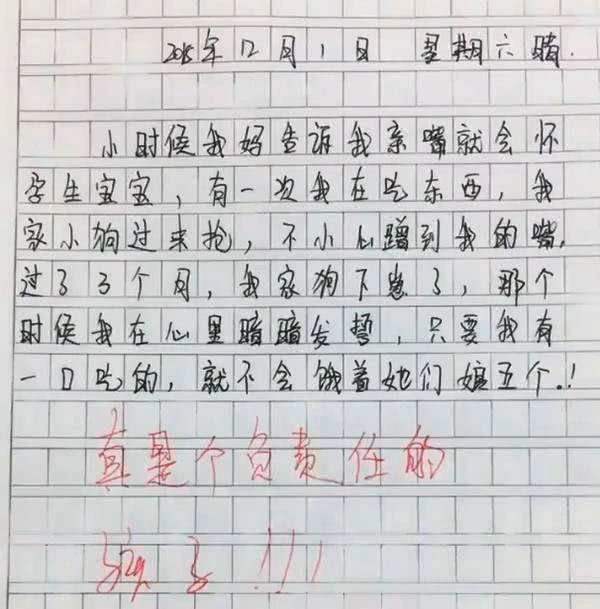 2018年12月1日 星期六 晴.
小时候我妈告诉我亲嘴就会怀
孕生宝宝，有一次我在吃东西，我
家小狗过来抢，不小心蹭到我的嘴，
过了3个月，我家狗下崽了，那个
时候我在心里暗暗发誓，只要我有
一口吃的，就不会饿着她们娘五个.！
真是个负责任的
孩子！！！